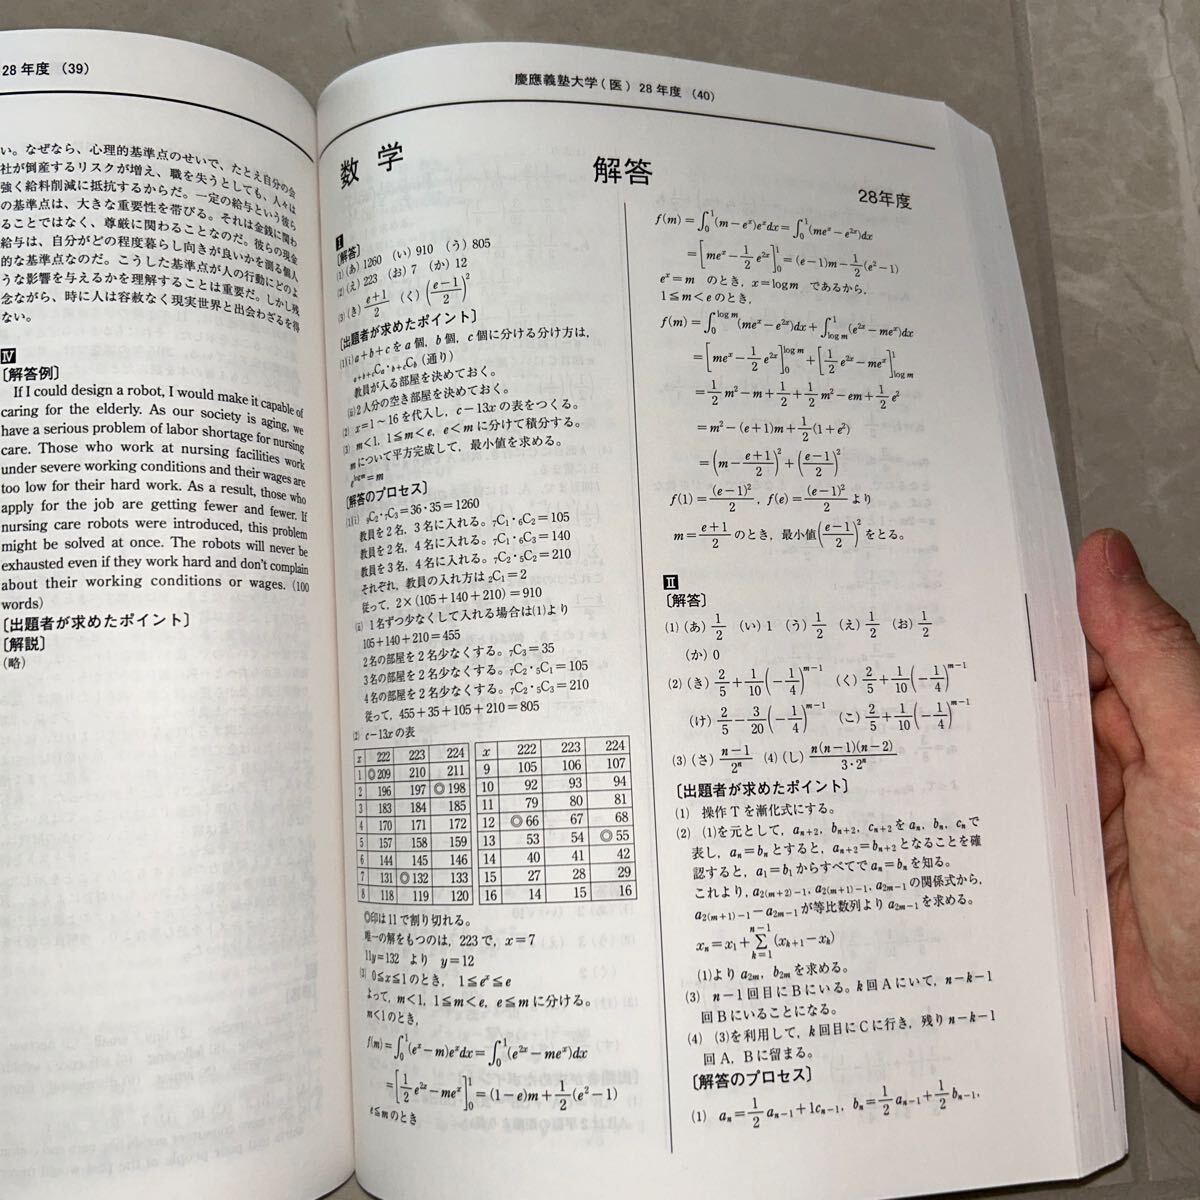 28年度 (39)
い。なぜなら、心理的基準点のせいで、たとえ自分の会
社が倒産するリスクが増え、職を失うとしても、人々は
強く給料削減に抵抗するからだ。一定の給与という彼ら
の基準点は、大きな重要性を帯びる。それは金銭に関わ
ることではなく、尊厳に関わることなのだ。彼らの現金
給与は、自分がどの程度暮らし向きが良いかを測る個人
的な基準点なのだ。こうした基準点が人の行動にどのよ
うな影響を与えるかを理解することは重要だ。しかし残
念ながら、時に人は容赦なく現実世界と出会わざるを得
ない。
Ⅳ
〔解答例〕
If I could design a robot, I would make it capable of
caring for the elderly. As our society is aging, we
have a serious problem of labor shortage for nursing
care. Those who work at nursing facilities work
under severe working conditions and their wages are
too low for their hard work. As a result, those who
apply for the job are getting fewer and fewer. If
nursing care robots were introduced, this problem
might be solved at once. The robots will never be
exhausted even if they work hard and don't complain
about their working conditions or wages. (100
words)
〔出題者が求めたポイント〕
〔解説〕
(略)
慶應義塾大学(医) 28年度 (40)
数学 解答
28年度
Ⅰ
〔解答〕
(1)(あ) 1260 (い) 910 (う) 805
(2)(え) 223 (お) 7 (か) 12
(3)(き) (e+1)/2 (く) ((e−1)/2)²
〔出題者が求めたポイント〕
(1)(i) a+b+c を a 個, b 個, c 個に分ける分け方は,
a+b+cCa・b+cCb (通り)
教員が入る部屋を決めておく。
(ii) 2人分の空き部屋を決めておく。
(2) x=1〜16 を代入し, c−13x の表をつくる。
(3) m<1, 1≦m<e, e<m に分けて積分する。
m について平方完成して, 最小値を求める。
e^(log m)=m
〔解答のプロセス〕
(1)(i) ₉C₂・₇C₃=36・35=1260
教員を2名, 3名に入れる。₇C₁・₆C₂=105
教員を2名, 4名に入れる。₇C₁・₆C₃=140
教員を3名, 4名に入れる。₇C₂・₅C₂=210
それぞれ, 教員の入れ方は ₂C₁=2
従って, 2×(105+140+210)=910
(ii) 1名ずつ少なくして入れる場合は(1)より
105+140+210=455
2名の部屋を2名少なくする。₇C₃=35
3名の部屋を2名少なくする。₇C₂・₅C₁=105
4名の部屋を2名少なくする。₇C₂・₅C₃=210
従って, 455+35+105+210=805
(2) c−13x の表
x 222 223 224 x 222 223 224
1 ◎209 210 211 9 105 106 107
2 196 197 ◎198 10 92 93 94
3 183 184 185 11 79 80 81
4 170 171 172 12 ◎66 67 68
5 157 158 159 13 53 54 ◎55
6 144 145 146 14 40 41 42
7 131 ◎132 133 15 27 28 29
8 118 119 120 16 14 15 16
◎印は11で割り切れる。
唯一の解をもつのは, 223で, x=7
11y=132 より y=12
(3) 0≦x≦1 のとき, 1≦eˣ≦e
よって, m<1, 1≦m<e, e≦m に分ける。
m<1 のとき,
f(m)=∫₀¹(eˣ−m)eˣdx=∫₀¹(e²ˣ−meˣ)dx
=[½e²ˣ−meˣ]₀¹=(1−e)m+½(e²−1)
e≦m のとき
f(m)=∫₀¹(m−eˣ)eˣdx=∫₀¹(meˣ−e²ˣ)dx
=[meˣ−½e²ˣ]₀¹=(e−1)m−½(e²−1)
eˣ=m のとき, x=log m であるから,
1≦m<e のとき,
f(m)=∫₀^(log m)(meˣ−e²ˣ)dx+∫_(log m)^1(e²ˣ−meˣ)dx
=[meˣ−½e²ˣ]₀^(log m)+[½e²ˣ−meˣ]_(log m)^1
=½m²−m+½+½m²−em+½e²
=m²−(e+1)m+½(1+e²)
=(m−(e+1)/2)²+((e−1)/2)²
f(1)=(e−1)²/2, f(e)=(e−1)²/2 より
m=(e+1)/2 のとき, 最小値((e−1)/2)²をとる。
Ⅱ
〔解答〕
(1)(あ) 1/2 (い) 1 (う) 1/2 (え) 1/2 (お) 1/2
(か) 0
(2)(き) 2/5+1/10(−1/4)^(m−1) (く) 2/5+1/10(−1/4)^(m−1)
(け) 2/5−3/20(−1/4)^(m−1) (こ) 2/5+1/10(−1/4)^(m−1)
(3)(さ) (n−1)/2ⁿ (4)(し) n(n−1)(n−2)/(3・2ⁿ)
〔出題者が求めたポイント〕
(1) 操作Tを漸化式にする。
(2) (1)を元として, aₙ₊₂, bₙ₊₂, cₙ₊₂ を aₙ, bₙ, cₙ で
表し, aₙ=bₙ とすると, aₙ₊₂=bₙ₊₂ となることを確
認すると, a₁=b₁ からすべてで aₙ=bₙ を知る。
これより, a2(m+2)−1, a2(m+1)−1, a2m−1 の関係式から,
a2(m+1)−1−a2m−1 が等比数列より a2m−1 を求める。
xₙ=x₁+Σ_(k=1)^(n−1)(xₖ₊₁−xₖ)
(1)より a2m, b2m を求める。
(3) n−1回目にBにいる。k回Aにいて, n−k−1
回Bにいることになる。
(4) (3)を利用して, k回目にCに行き, 残りn−k−1
回A, Bに留まる。
〔解答のプロセス〕
(1) aₙ=½aₙ₋₁+1cₙ₋₁, bₙ=½aₙ₋₁+½bₙ₋₁,